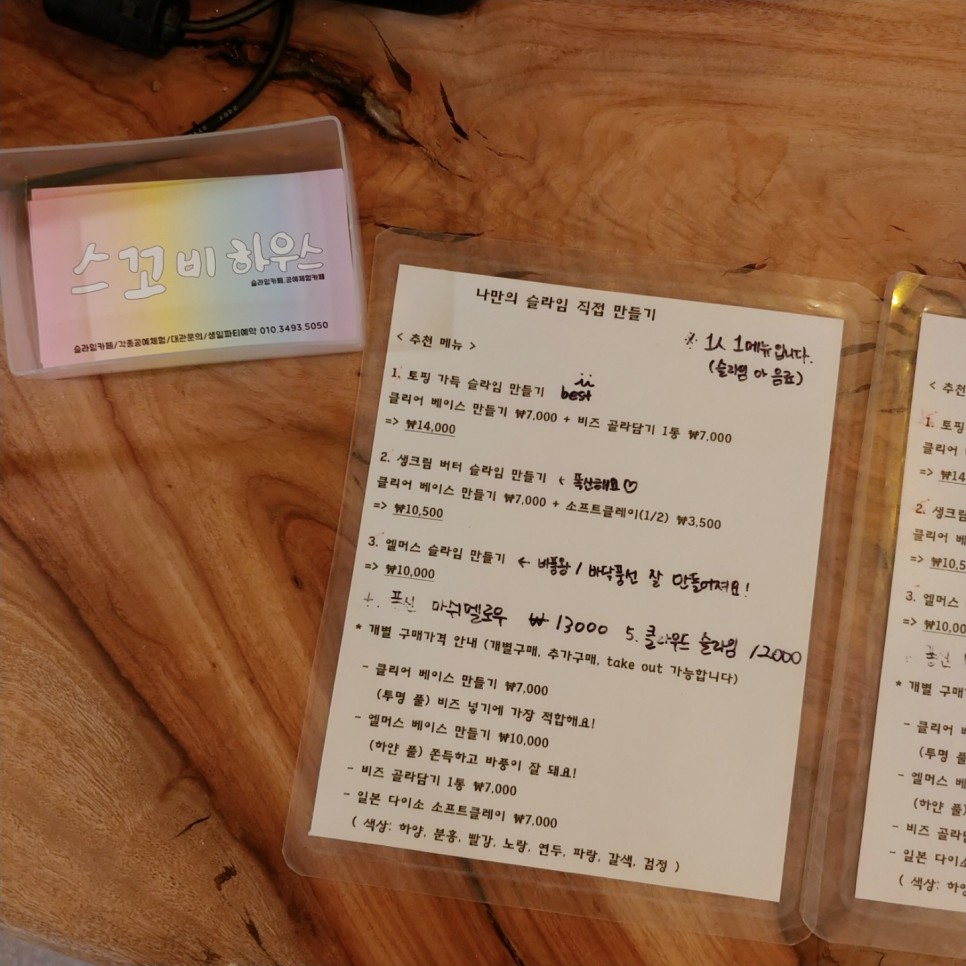 스꼬비 하우스
슬라임카페.공예체험카페
슬라임카페/각종공예체험/대관문의/생일파티예약 010.3493.5050
나만의 슬라임 직접 만들기
※ 1人 1메뉴 입니다.
(슬라임 or 음료)
< 추천 메뉴 >
1. 토핑 가득 슬라임 만들기 best
클리어 베이스 만들기 ₩7,000 + 비즈 골라담기 1통 ₩7,000
=> ₩14,000
2. 생크림 버터 슬라임 만들기 ← 폭신해요♡
클리어 베이스 만들기 ₩7,000 + 소프트클레이(1/2) ₩3,500
=> ₩10,500
3. 엘머스 슬라임 만들기 ← 바풍왕 / 바닥풍선 잘 만들어져요!
=> ₩10,000
4. 마쉬멜로우 ₩13000 5. 클라우드 슬라임 12000
* 개별 구매가격 안내 (개별구매, 추가구매, take out 가능합니다)
- 클리어 베이스 만들기 ₩7,000
(투명 풀) 비즈 넣기에 가장 적합해요!
- 엘머스 베이스 만들기 ₩10,000
(하얀 풀) 쫀득하고 바풍이 잘 돼요!
- 비즈 골라담기 1통 ₩7,000
- 일본 다이소 소프트클레이 ₩7,000
( 색상: 하양, 분홍, 빨강, 노랑, 연두, 파랑, 갈색, 검정 )
< 추천
1. 토핑
클리어
=> ₩14
2. 생크림
클리어 베
=> ₩10,5
3. 엘머스
=> ₩10,00
* 개별 구매
- 클리어 베
(투명 풀
- 엘머스 베
(하얀 풀)
- 비즈 골라담
- 일본 다이소
( 색상: 하양